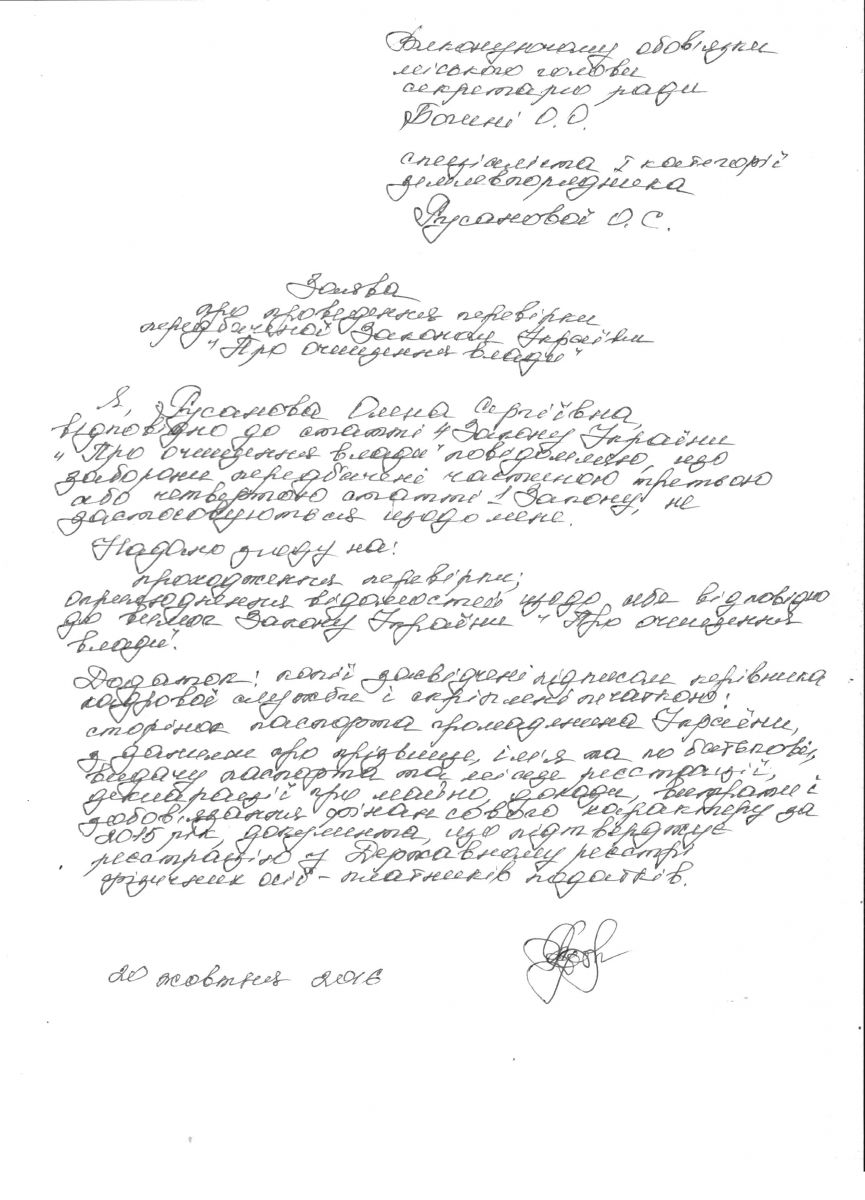 Виконуючому обов'язки
міського голови
секретарю ради
О.О.
спеціаліста І категорії
землевпорядника
Русановой О.С.
Заява
про проведення перевірки
передбаченой Законом України
"Про очищення влади"
Я, Русанова Олена Сергіївна,
відповідно до статті 4 Закону України
"Про очищення влади" повідомляю, що
заборони передбачені частиною третьою
або четвертою статті 1 Закону, не
застосовуються щодо мене.
Надаю згоду на:
проходження перевірки;
оприлюднення відомостей щодо себе відповідно
до вимог Закону України "Про очищення
влади".
Додаток: копії засвідчені підписом керівника
кадровой служби і скріплені печаткою:
сторінок паспорта громадянина України,
з даними про прізвище, ім'я та по батькові,
видачу паспорта та місце реєстрації,
декларації про майно, доходи, витрати і
зобов'язання фінансового характеру за
2015 рік, документа, що підтверджує
реєстрацію у Державному реєстрі
фізичних осіб - платників податків.
20 жовтня 2016